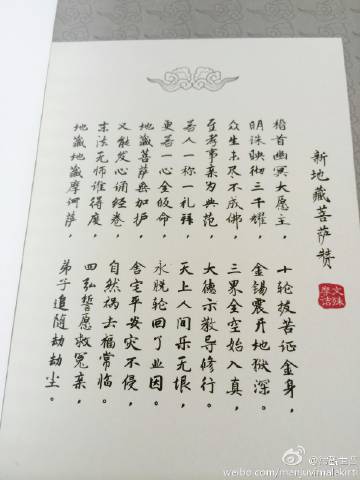 新地藏菩萨赞
文殊
摩洁
稽首幽冥大愿主，十轮拔苦证金身，
明珠映彻三千耀，金锡震开地狱深。
众生未尽不成佛，三界全空始入真，
至孝事亲为典范，大德示教导修行。
若人一称一礼拜，天上人间乐无垠，
更若一心全皈命，永脱轮回了业因。
地藏菩萨加护，舍宅平安灾不侵，
又能发心诵经卷，自然祸去福常临。
末法无师谁得度，四弘誓愿救冤亲，
地藏地藏摩诃萨，弟子追随劫劫尘。
weibo.com/manjuvimalekirti